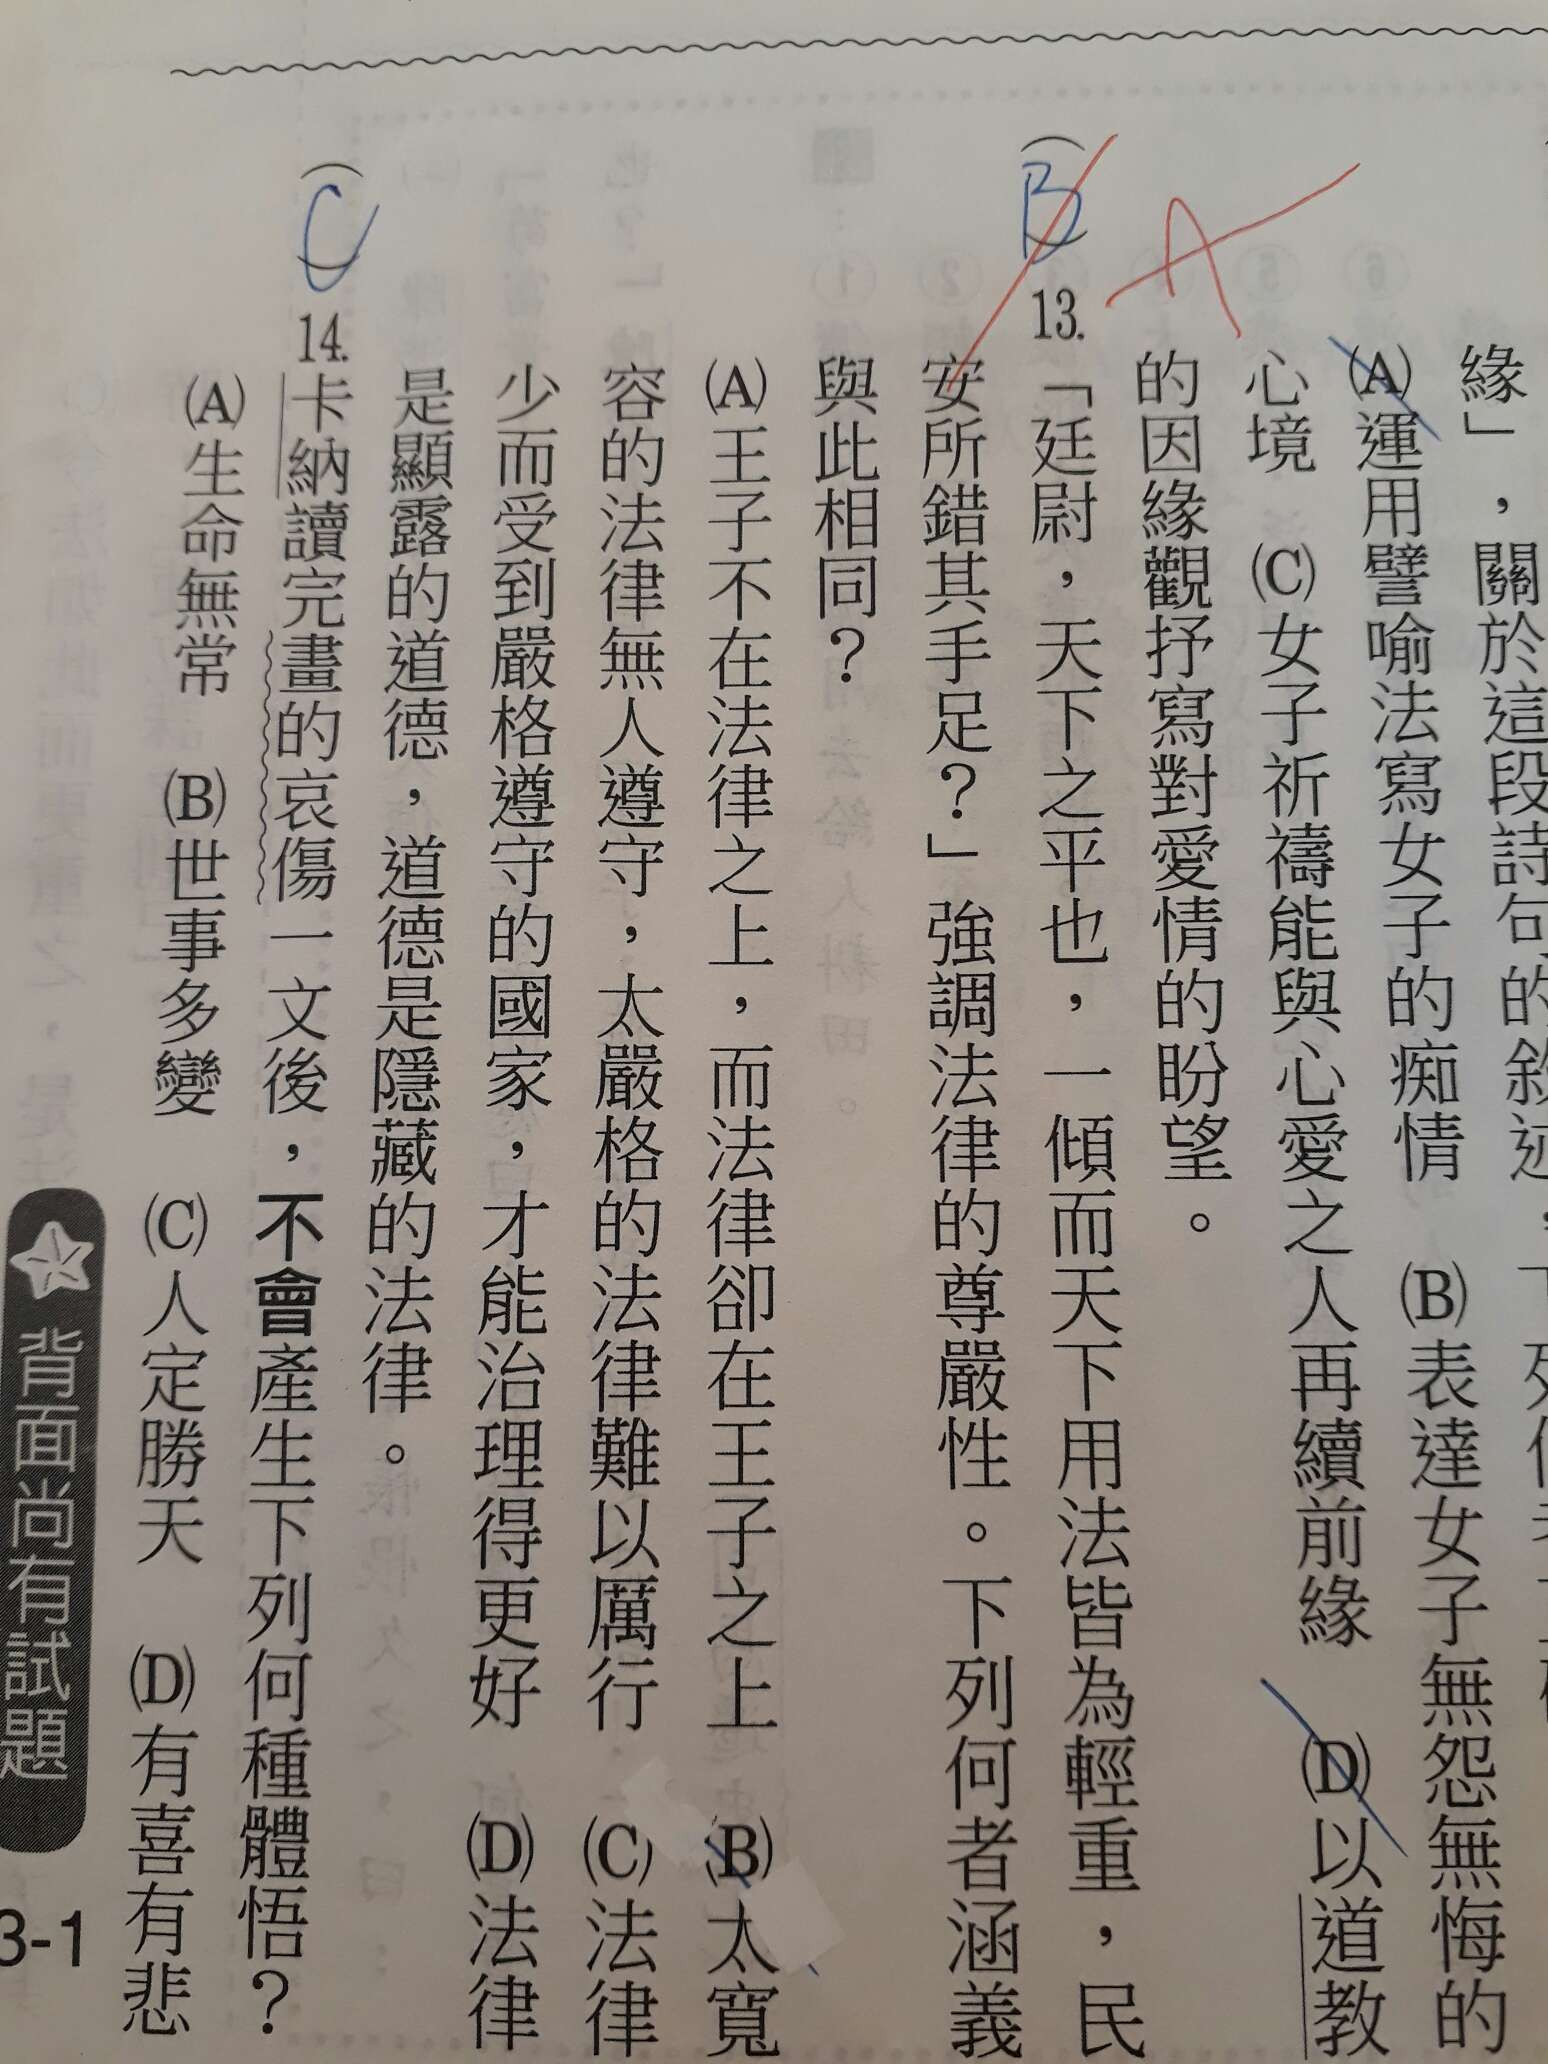 緣」，關於這段詩句的敘述，下列何者正
(A)運用譬喻法寫女子的痴情 (B)表達女子無怨無悔的
心境 (C)女子祈禱能與心愛之人再續前緣 (D)以道教
的因緣觀抒寫對愛情的盼望。
A
(B) 13.「廷尉，天下之平也，一傾而天下用法皆為輕重，民
安所錯其手足？」強調法律的尊嚴性。下列何者涵義
與此相同？
(A)王子不在法律之上，而法律卻在王子之上 (B)太寬
容的法律無人遵守，太嚴格的法律難以厲行 (C)法律
少而受到嚴格遵守的國家，才能治理得更好 (D)法律
是顯露的道德，道德是隱藏的法律。
(C) 14.卡納讀完畫的哀傷一文後，不會產生下列何種體悟？
(A)生命無常 (B)世事多變 (C)人定勝天 (D)有喜有悲
背面尚有試題
3-1